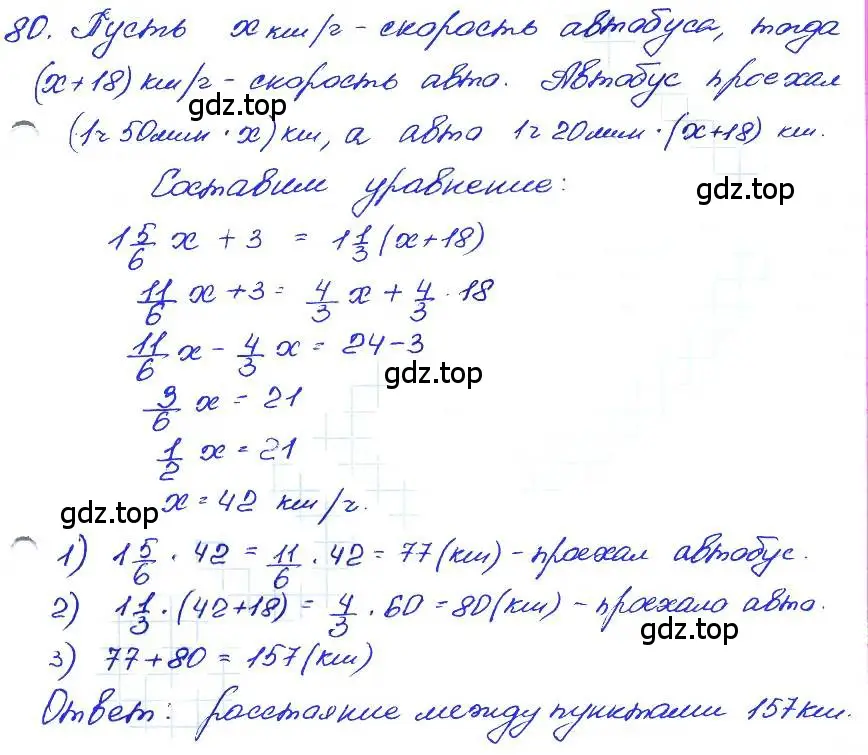 80. Пусть x км/ч - скорость автобуса, тогда
(x+18) км/ч - скорость авто. Автобус проехал
gdz.top
(1ч 50мин · x) км, а авто 1ч 20мин · (x+18) км.
Составим уравнение:
gdz.top
1 5/6 x + 3 = 1 1/3 (x+18)
11/6 x + 3 = 4/3 x + 4/3 · 18
11/6 x - 4/3 x = 24 - 3
gdz.top
3/6 x = 21
1/2 x = 21
x = 42 км/ч.
gdz.top
1) 1 5/6 · 42 = 11/6 · 42 = 77 (км) - проехал автобус.
2) 1 1/3 · (42+18) = 4/3 · 60 = 80 (км) - проехало авто.
gdz.top
3) 77 + 80 = 157 (км)
Ответ: расстояние между пунктами 157 км.